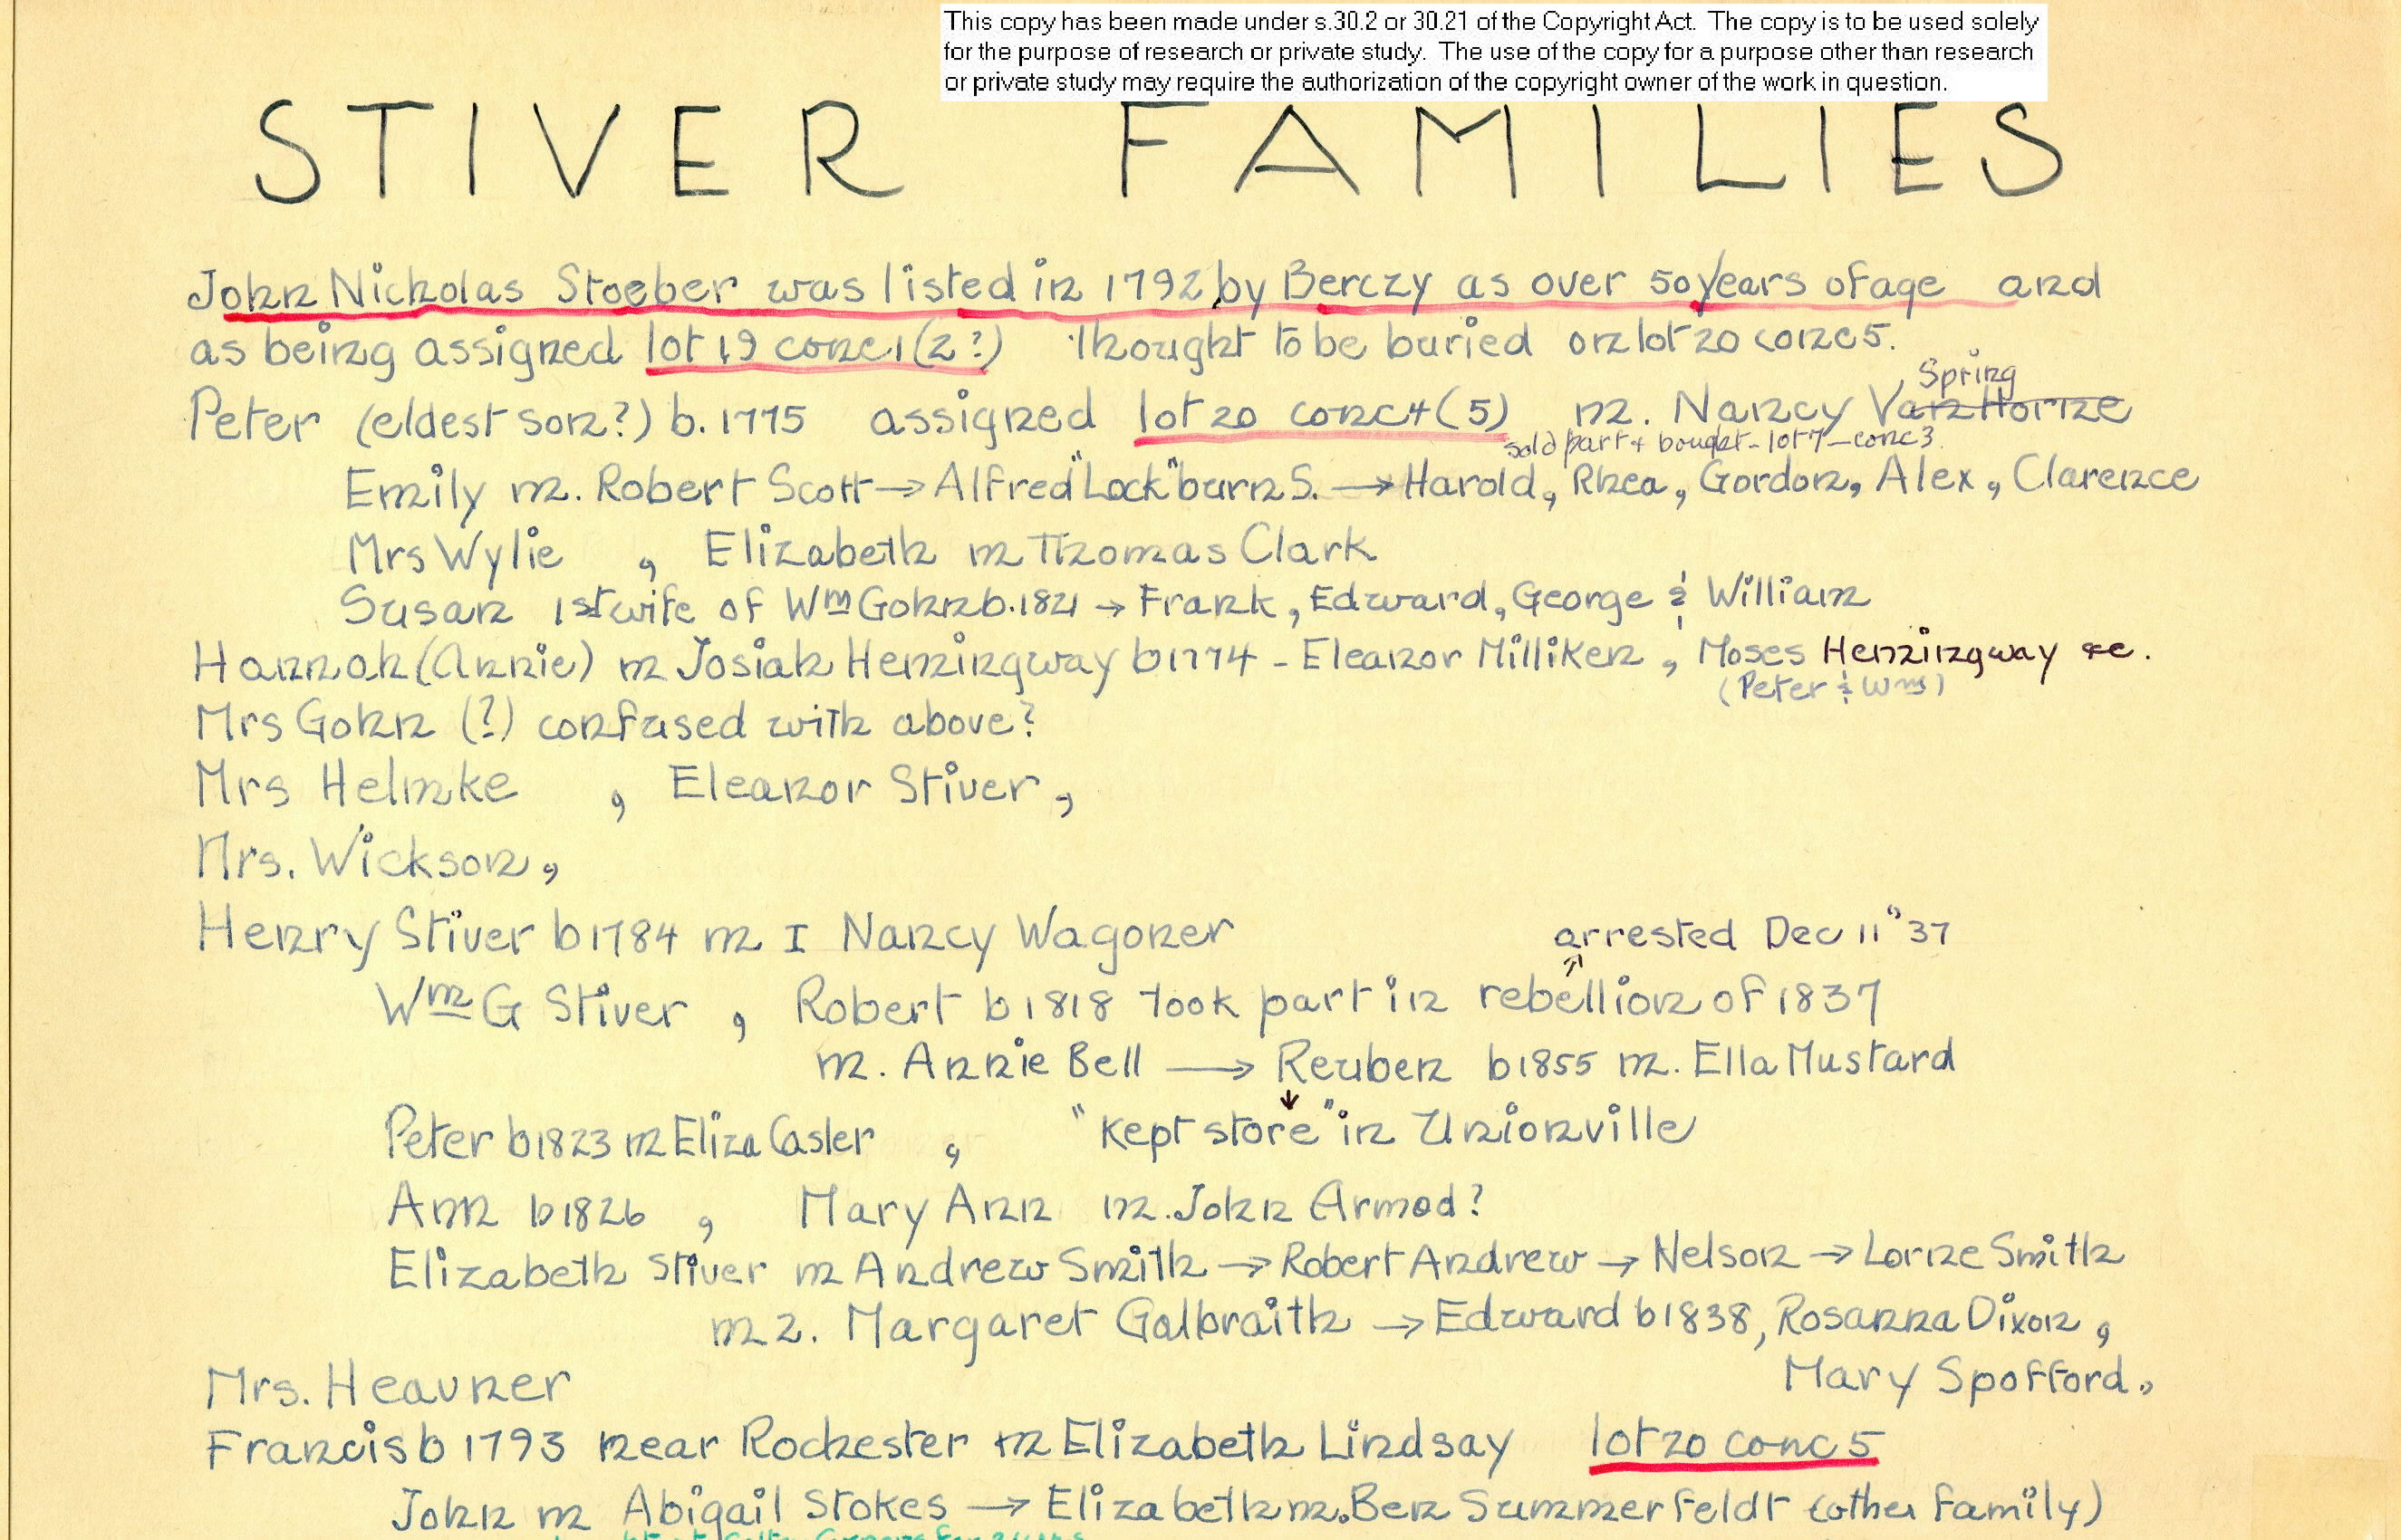 This copy has been made under s.30.2 or 30.21 of the Copyright Act. The copy is to be used solely
for the purpose of research or private study. The use of the copy for a purpose other than research
or private study may require the authorization of the copyright owner of the work in question.
STIVER FAMILIES
John Nickolas Stoeber was listed in 1792 by Berczy as over 50 years of age and
as being assigned lot 19 conc 1 (2?) Thought to be buried on lot 20 conc 5.
Spring
Peter (eldest son?) b. 1775 assigned lot 20 conc 4 (5) m. Nancy Van Horne
sold part & bought - lot 7 - conc 3.
Emily m. Robert Scott → Alfred "Lock"burn S. → Harold, Rhea, Gordon, Alex, Clarence
Mrs Wylie , Elizabeth m Thomas Clark
Susan 1st wife of Wm Gohn b. 1821 → Frank, Edward, George & William
Hannah (Annie) m Josiah Hemingway b 1774 - Eleanor Milliken, Moses Hemingway &c.
(Peter & Wm)
Mrs Gohn (?) confused with above?
Mrs Helmke , Eleanor Stiver,
Mrs. Wickson,
Henry Stiver b 1784 m I Nancy Wagoner arrested Dec 11" 37
Wm G Stiver , Robert b 1818 took part in rebellion of 1837
m. Annie Bell → Reuben b 1855 m. Ella Mustard
Peter b 1823 m Eliza Casler , "kept store" in Unionville
Ann b 1826 , Mary Ann m. John Armod?
Elizabeth Stiver m Andrew Smith → Robert Andrew → Nelson → Lorne Smith
m 2. Margaret Galbraith → Edward b 1838, Rosanna Dixon,
Mrs. Heavner Mary Spofford.
Francis b 1793 near Rochester m Elizabeth Lindsay lot 20 conc 5
John m Abigail Stokes → Elizabeth m. Ben Summerfeldt (other family)